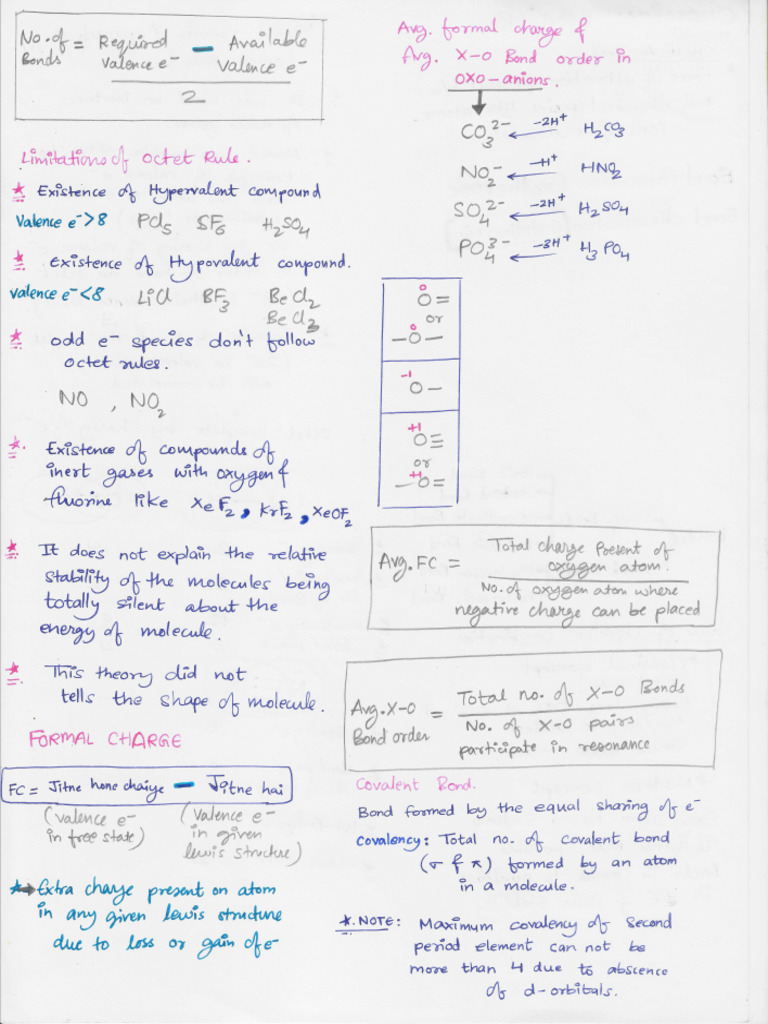 No. of Bonds = Required Valence e⁻ − Available Valence e⁻
2
Limitations of Octet Rule.
* Existence of Hypervalent compound
Valence e⁻>8 PCl₅ SF₆ H₂SO₄
* existence of Hypovalent compound.
Valence e⁻<8 LiCl BF₃ BeCl₂
BeCl₃
* odd e⁻ species don't follow
octet rules.
NO , NO₂
* Existence of compounds of
inert gases with oxygen &
fluorine like XeF₂, KrF₂, XeOF₂
* It does not explain the relative
stability of the molecules being
totally silent about the
energy of molecule.
* This theory did not
tells the shape of molecule.
FORMAL CHARGE
FC = Jitne hone chaiye − Jitne hai
(valence e⁻ in free state) (valence e⁻ in given lewis structure)
*→ Extra charge present on atom
in any given lewis structure
due to loss or gain of e⁻
Avg. formal charge &
Avg. X-O Bond order in
oxo-anions.
CO₃²⁻ ← −2H⁺ H₂CO₃
NO₂⁻ ← −H⁺ HNO₂
SO₄²⁻ ← −2H⁺ H₂SO₄
PO₄³⁻ ← −3H⁺ H₃PO₄
0
O=
or
0
—O—
-1
O—
+1
O≡
or
+1
—O=
Avg. FC = Total charge Present of
oxygen atom.
No. of oxygen atom where
negative charge can be placed
Avg. X-O Bond order = Total no. of X-O Bonds
No. of X-O pairs
participate in resonance
Covalent Bond.
Bond formed by the equal sharing of e⁻
covalency: Total no. of covalent bond
(σ & π) formed by an atom
in a molecule.
*. NOTE: Maximum covalency of second
period element can not be
more than 4 due to abscence
of d-orbitals.